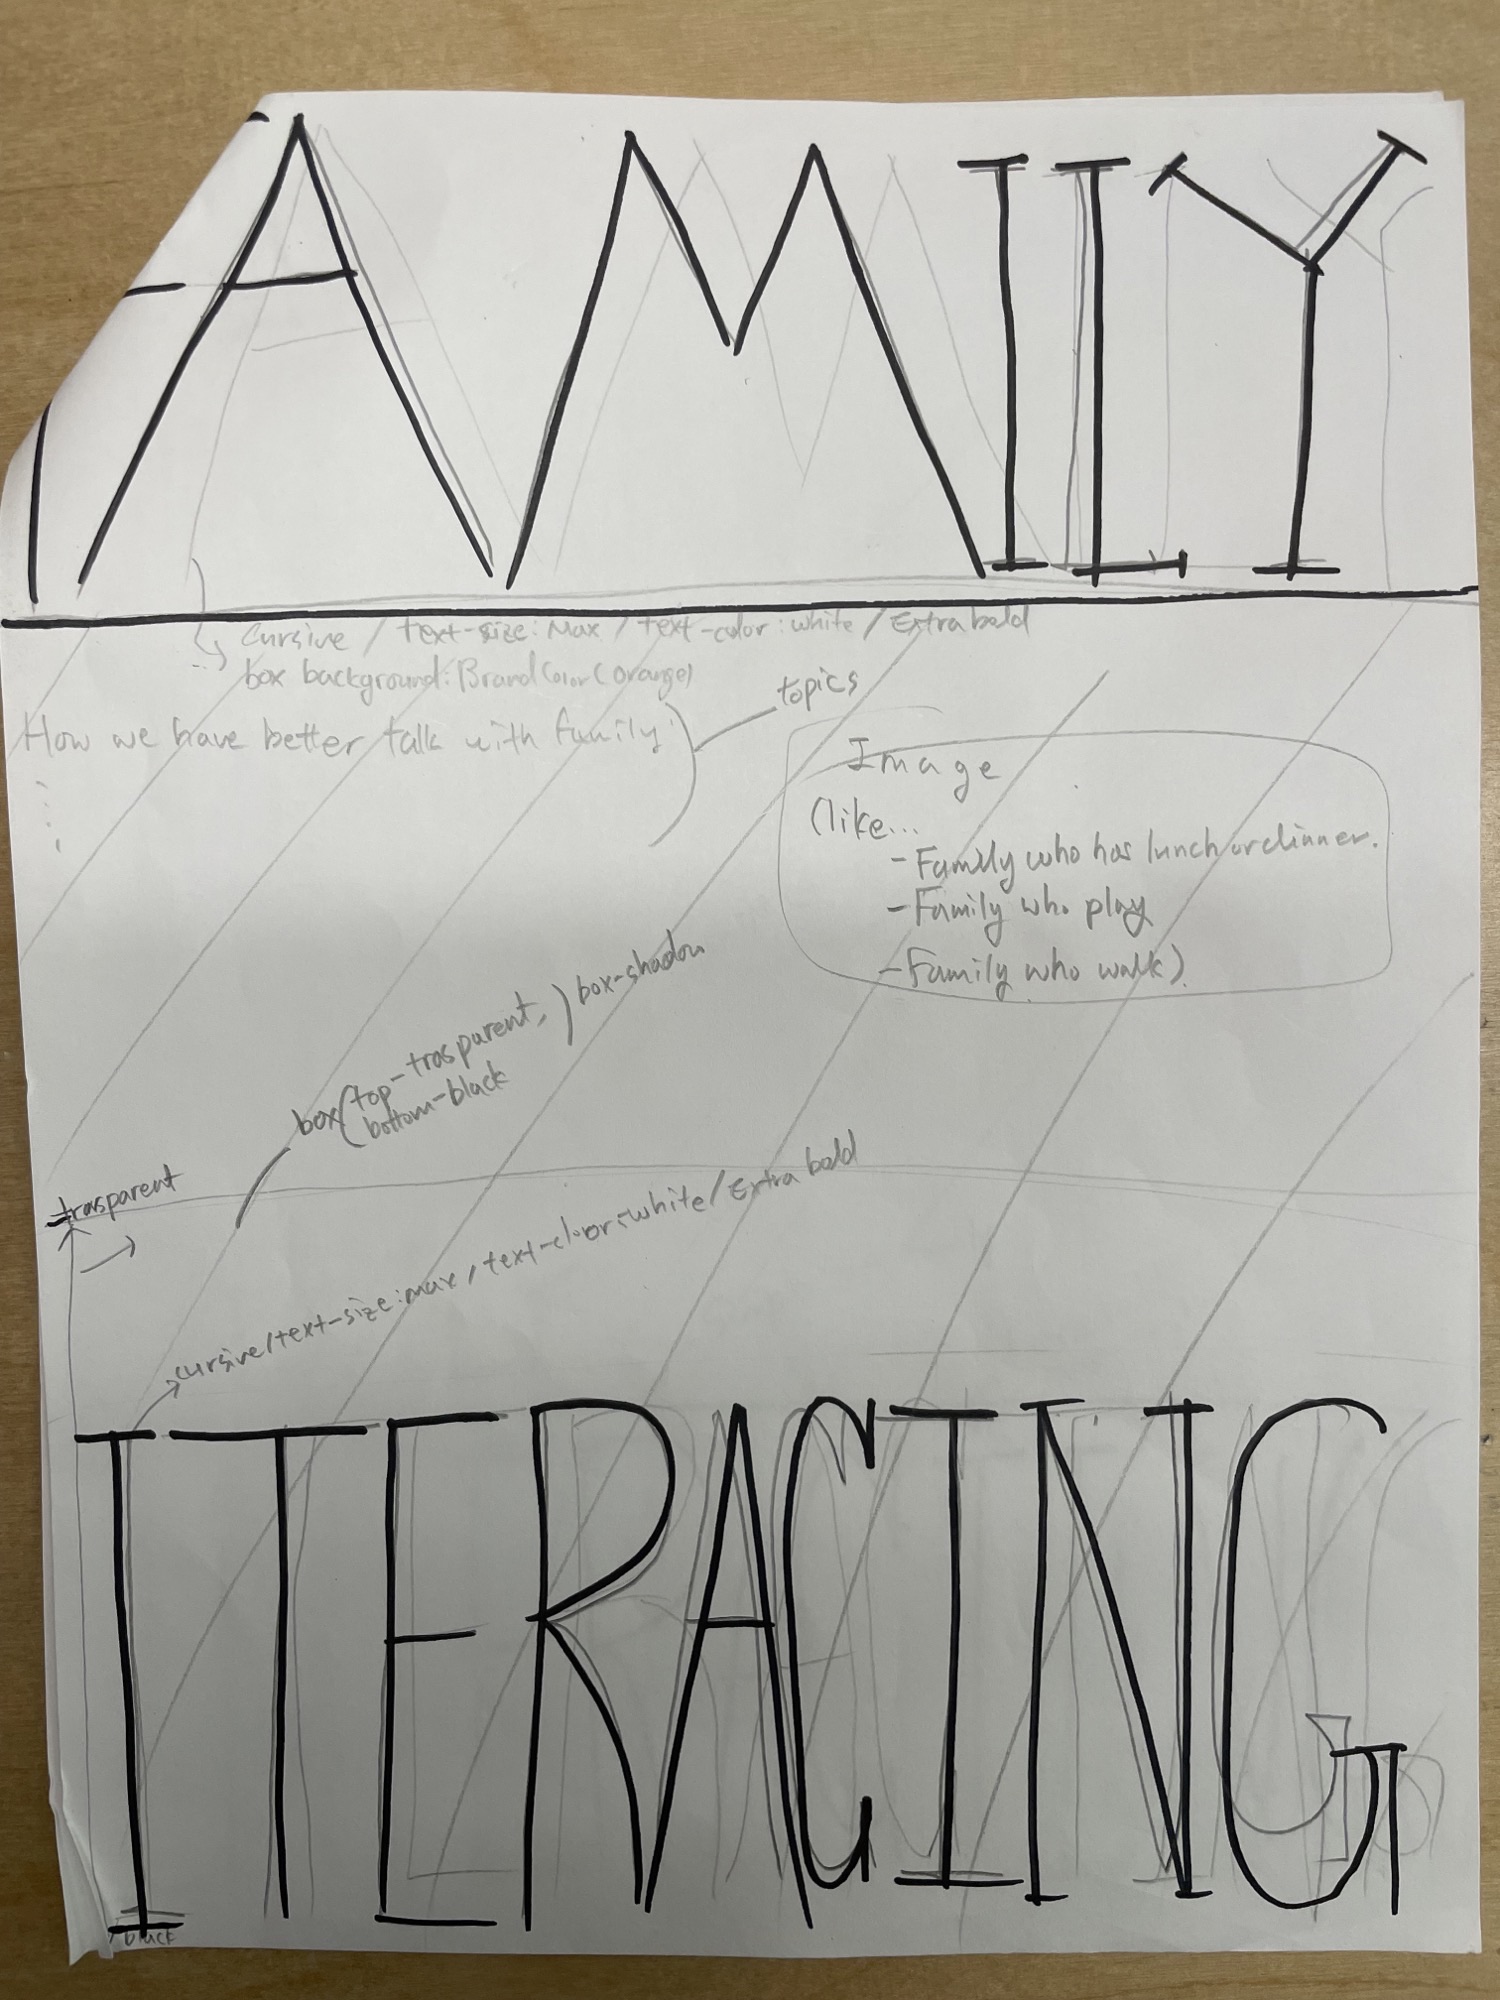 FAMILY
Cursive / text-size: Max / text-color: white / Extra bold
box background: Brand Color (orange)
topics
How we have better talk with family
Image
(like...
- Family who has lunch or dinner.
- Family who play
- Family who walk)
box (top-trasparent, ) box-shadow
bottom-black
trasparent
cursive/text-size: max / text-cloor: white / Extra bold
ITERACING
black